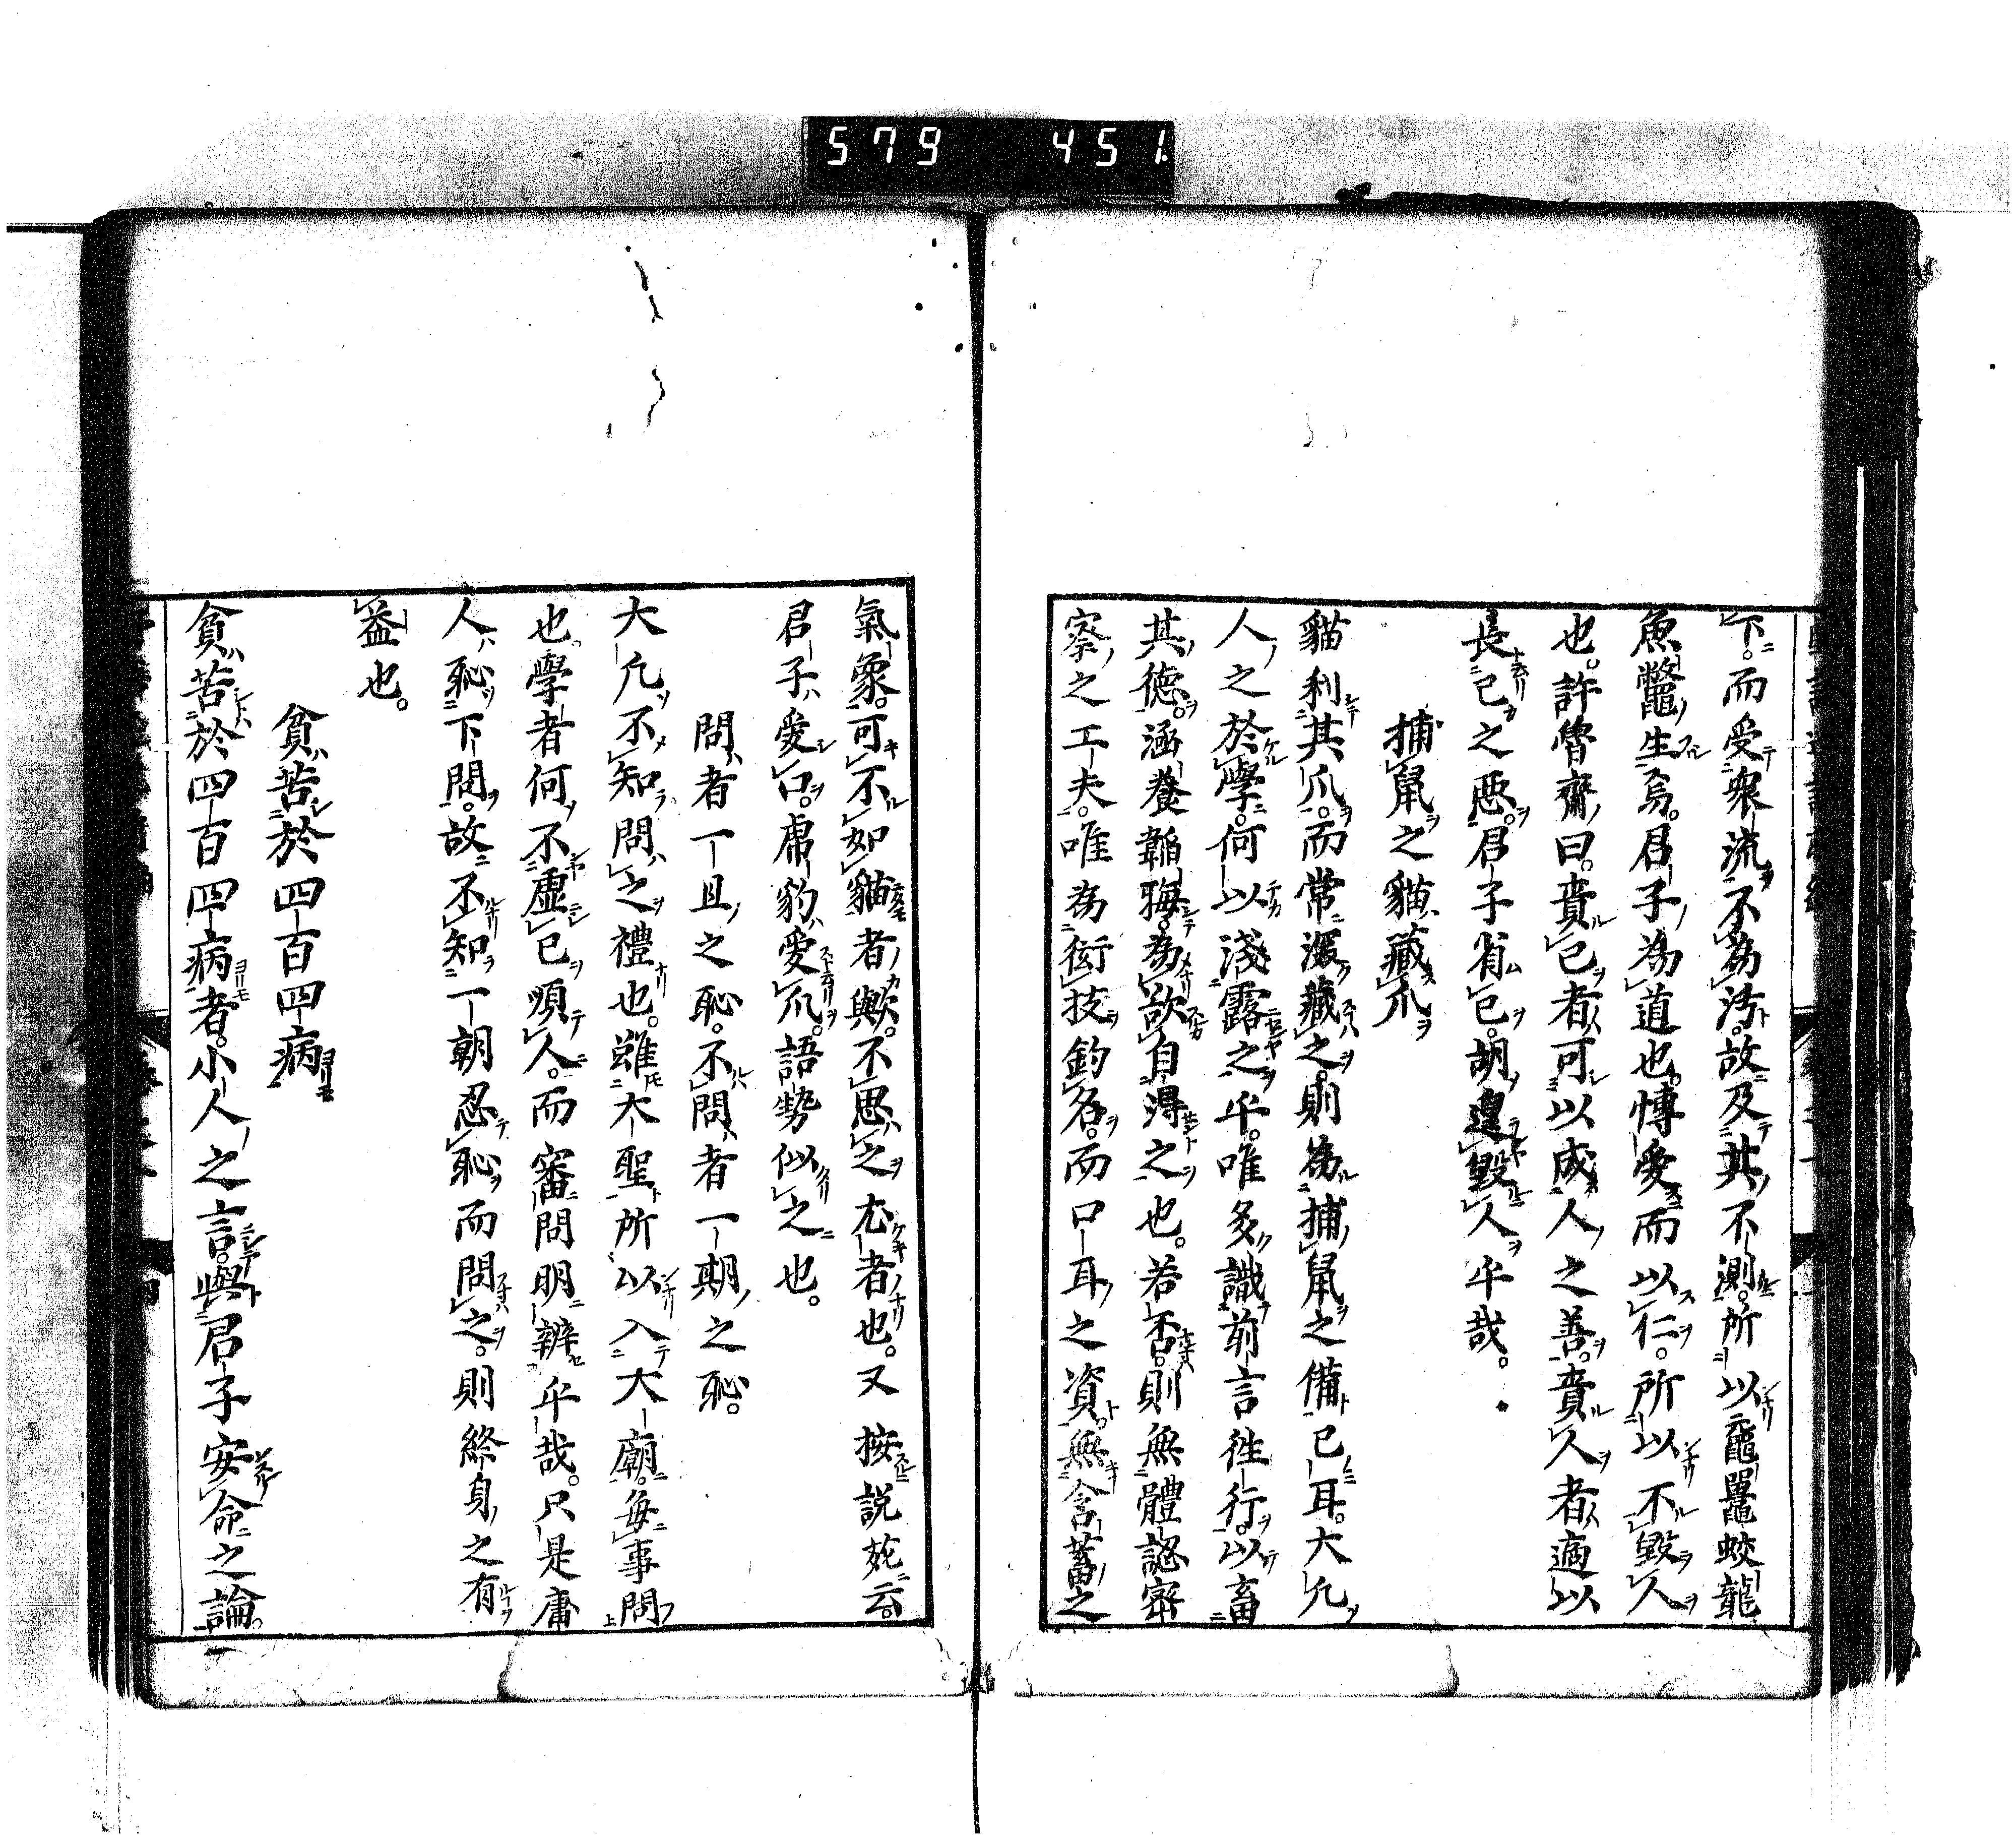 579 451
下。而受衆流不為汚。故及其不測。所以黿鼉蛟龍
魚鼈生焉。君子為道也。愽愛而以仁。所以不毀人
也。許魯齋曰。責己者可以成人之善。責人者適以
長己之惡。君子省己。胡遑毀人乎哉。
捕鼠之貓藏爪
貓利其爪。而常深藏之。則為捕鼠之備已耳。大凢
人之於學。何以淺露之乎。唯多識前言徃行。以畜
其德。涵養韜晦。為欲自得之也。若否。則無體認密
察之工夫。唯為衒技釣名。而口耳之資。無含蓄之
氣象。可不如貓者歟。不思之尤者也。又按說苑云。
君子愛口。虎豹愛爪。語勢似之也。
問者一旦之恥。不問者一期之恥。
大凢不知問之禮也。雖大聖所以入大廟。每事問
也。學者何不虛己順人。而審問明辨乎哉。只是庸
人恥下問。故不知一朝忍恥而問之。則終身之有
益也。
貧苦於四百四病
貧苦於四百四病者。小人之言。與君子安命之論。